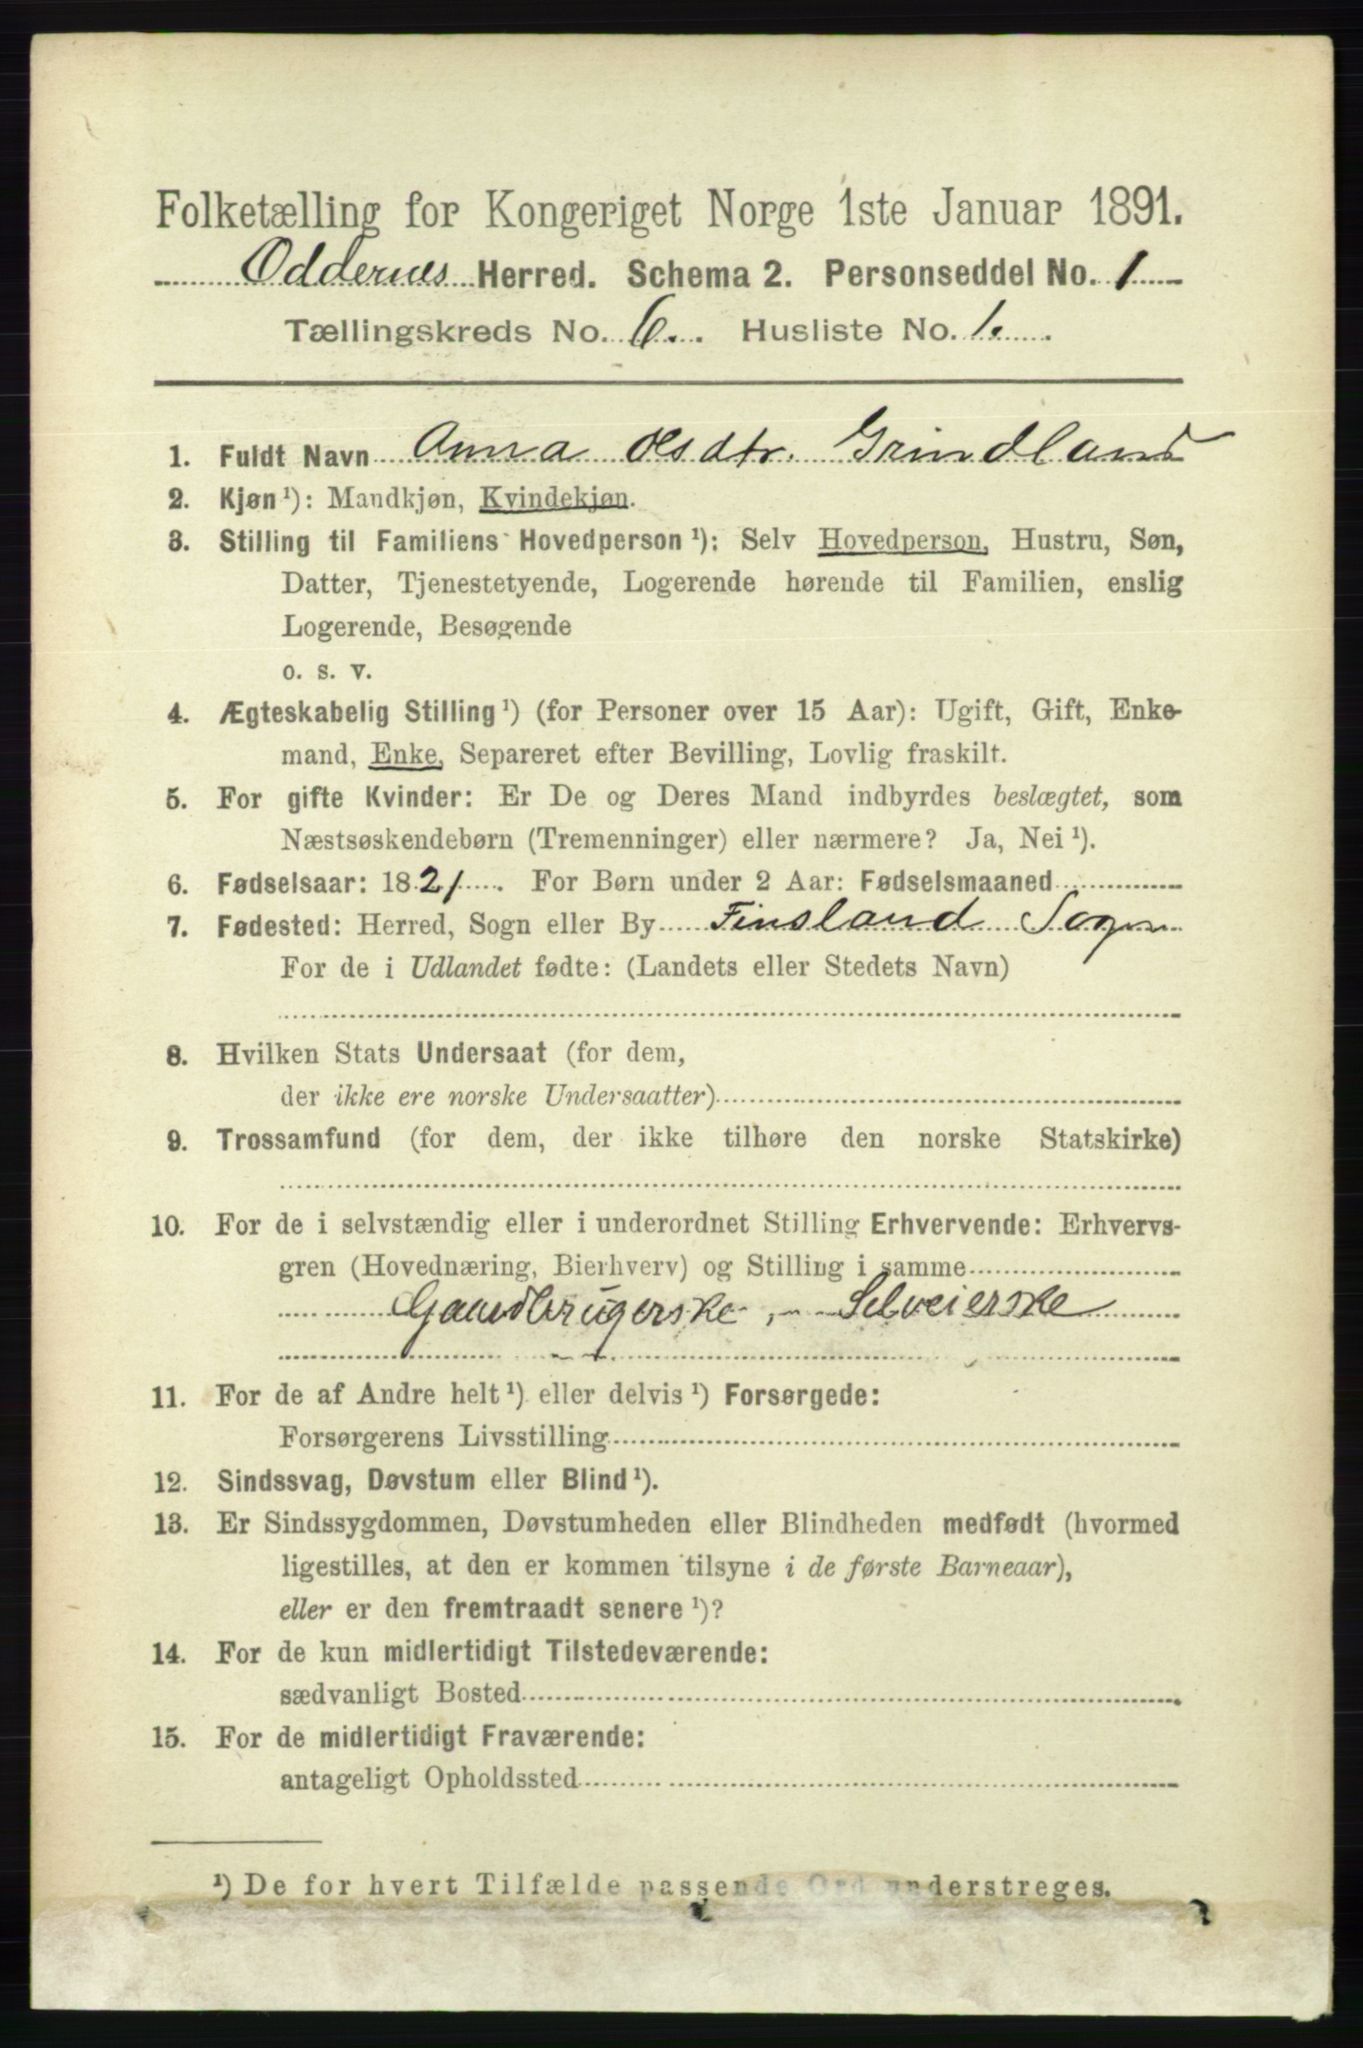 Folketælling for Kongeriget Norge 1ste Januar 1891.
Oddernes Herred. Schema 2. Personseddel No. 1
Tællingskreds No. 6. Husliste No. 1.
1. Fuldt Navn Anna Olsdtr. Grindland
2. Kjøn ¹): Mandkjøn, Kvindekjøn.
3. Stilling til Familiens Hovedperson ¹): Selv Hovedperson, Hustru, Søn,
Datter, Tjenestetyende, Logerende hørende til Familien, enslig
Logerende, Besøgende
o. s. v.
4. Ægteskabelig Stilling ¹) (for Personer over 15 Aar): Ugift, Gift, Enke-
mand, Enke, Separeret efter Bevilling, Lovlig fraskilt.
5. For gifte Kvinder: Er De og Deres Mand indbyrdes beslægtet, som
Næstsøskendebørn (Tremenninger) eller nærmere? Ja, Nei ¹).
6. Fødselsaar: 1821. For Børn under 2 Aar: Fødselsmaaned
7. Fødested: Herred, Sogn eller By Finsland Sogn
For de i Udlandet fødte: (Landets eller Stedets Navn)
8. Hvilken Stats Undersaat (for dem,
der ikke ere norske Undersaatter)
9. Trossamfund (for dem, der ikke tilhøre den norske Statskirke)
10. For de i selvstændig eller i underordnet Stilling Erhvervende: Erhvervs-
gren (Hovednæring, Bierhverv) og Stilling i samme
Gaardbrugerske, - Selveierske
11. For de af Andre helt ¹) eller delvis ¹) Forsørgede:
Forsørgerens Livsstilling
12. Sindssvag, Døvstum eller Blind ¹).
13. Er Sindssygdommen, Døvstumheden eller Blindheden medfødt (hvormed
ligestilles, at den er kommen tilsyne i de første Barneaar),
eller er den fremtraadt senere ¹)?
14. For de kun midlertidigt Tilstedeværende:
sædvanligt Bosted
15. For de midlertidigt Fraværende:
antageligt Opholdssted
¹) De for hvert Tilfælde passende Ord understreges.